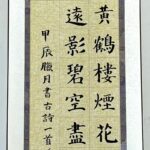 黃鶴樓煙花
遠影碧空盡
甲辰臘月書古詩一首